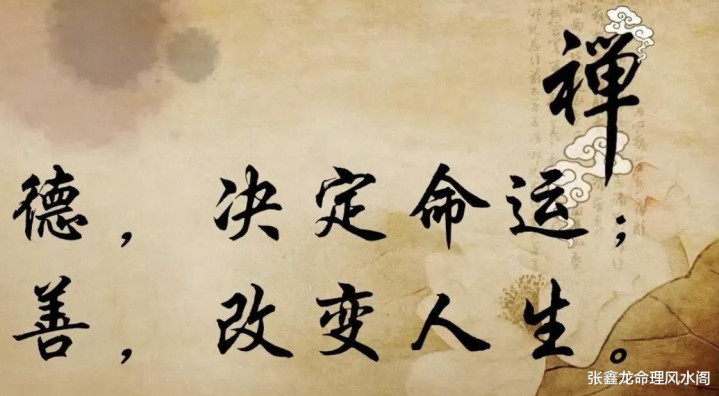 禅
德，决定命运；
善，改变人生。
张鑫龙命理风水阁